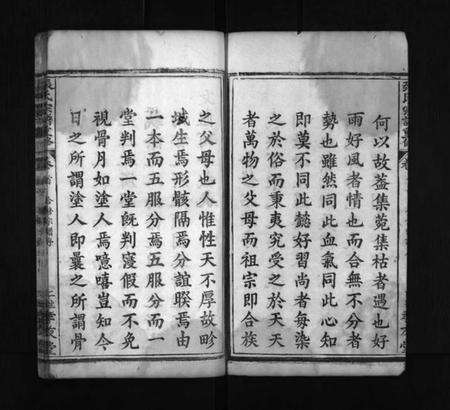 何以故葢集菀集枯者遇也好
雨好風者情也而合無不分者
勢也雖然同此血氣同此心知
即莫不同此懿好習尚者每染
之於俗而秉夷究受之於天天
者萬物之父母而祖宗即合族
之父母也人惟性天不厚故畛
域生焉形骸隔焉分誼睽焉由
一本而五服分焉五服分而一
堂判焉一堂旣判寖假而不免
視骨月如塗人焉噫嘻豈知今
日之所謂塗人即曩之所謂骨